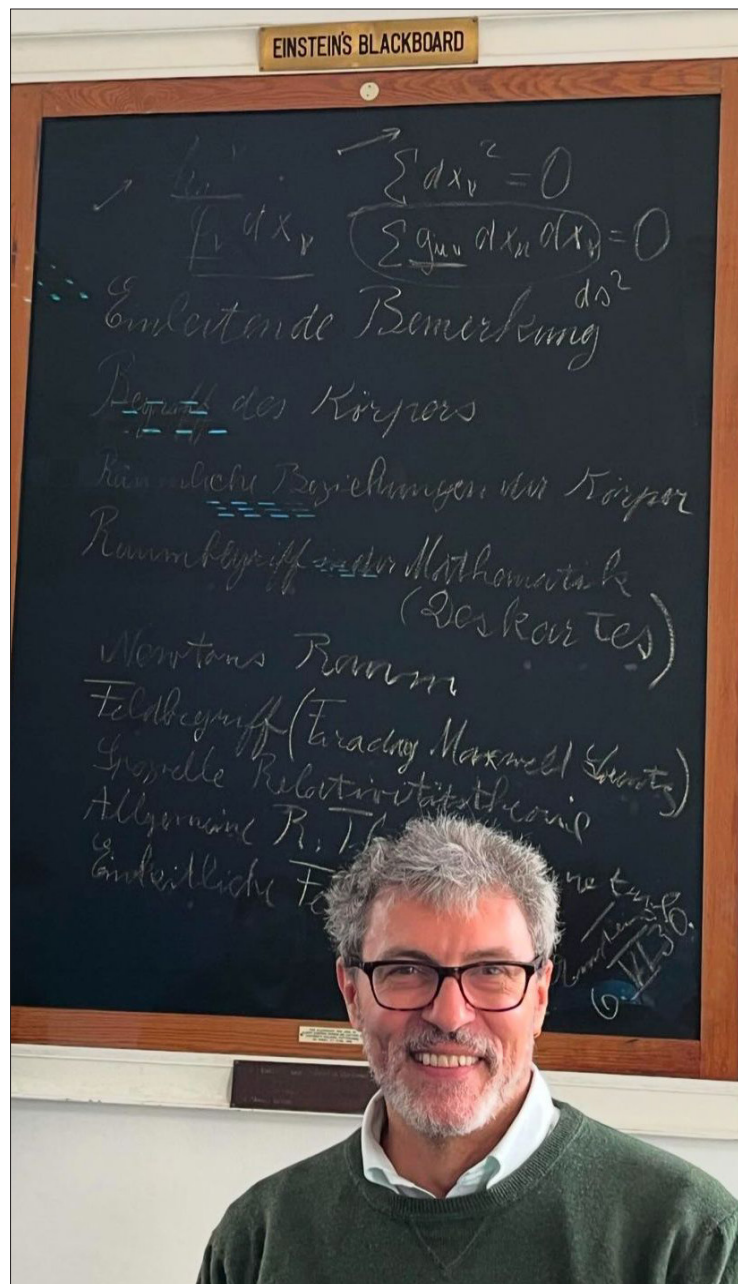 EINSTEIN'S BLACKBOARD
Σ dxν² = 0
dxν
Σ gμν dxμ dxν = 0
ds²
Einleitende Bemerkung
Begriff des Körpers
Räumliche Beziehungen der Körper
Raumbegriff in der Mathematik
(Deskartes)
Newtons Raum
Feldbegriff (Faraday Maxwell Lorentz)
Spezielle Relativitätstheorie
Allgemeine R.
Einheitliche
6 VI 36.